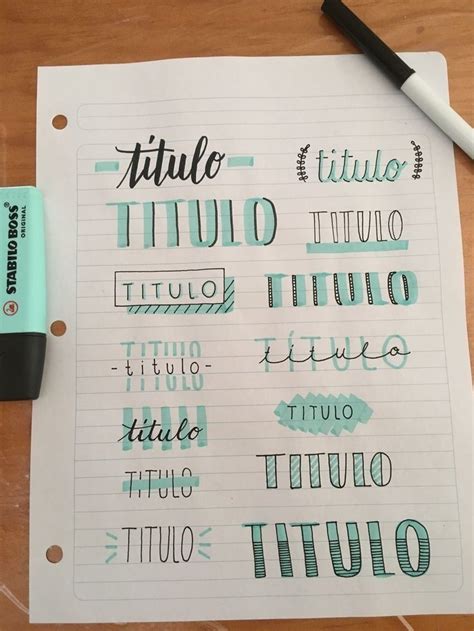 título
titulo
TITULO
TITULO
TITULO
TITULO
TITULO
-titulo-
TÍTULO
título
título
TITULO
TITULO
TITULO
TITULO
TITULO
STABILO BOSS
ORIGINAL